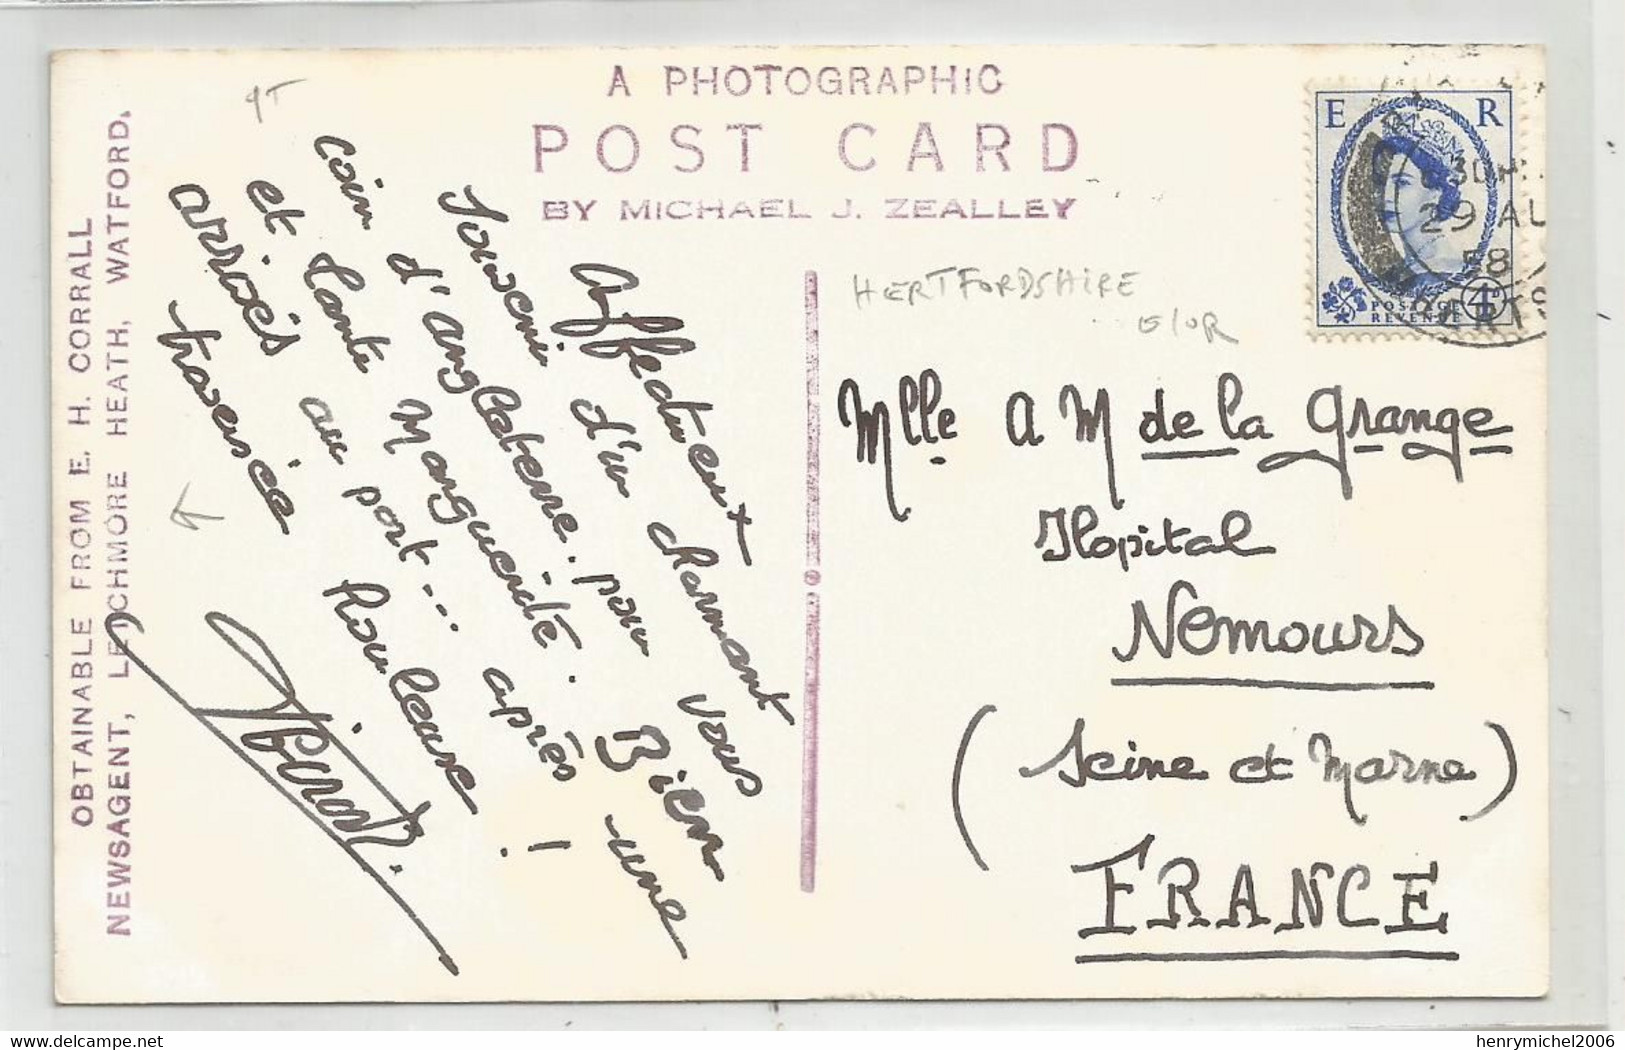 A PHOTOGRAPHIC
POST CARD
BY MICHAEL J. ZEALLEY
OBTAINABLE FROM E. H. CORRALL
NEWSAGENT, LETCHMORE HEATH, WATFORD.
Affectueux
Souvenir d'un charmant
coin d'angleterre. pour vous
et tante Marguerite. Bien
arrivés au port... après une
traversée houleuse !
HERTFORDSHIRE
E R
POSTAGE
REVENUE
4D
29 AU
58
HERTS
Mlle A M de la Grange
Hopital
Nemours
(Seine et Marne)
FRANCE
henrymichel2006